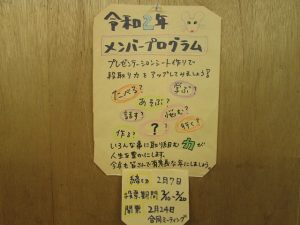 令和2年
メンバープログラム
プレゼンテーションシート作りで
段取り力をアップしてみましょう!
たべる? 学ぶ?
あそぶ?
話す? 悩む?
作る? ? 行く?
いろんな事に取り組む力が
人生を豊かにします。
今年も皆さんで有意義な年にしましょう。
締切 2月7日
投票期間 2/10~2/20
開票 2月24日
合同ミーティング